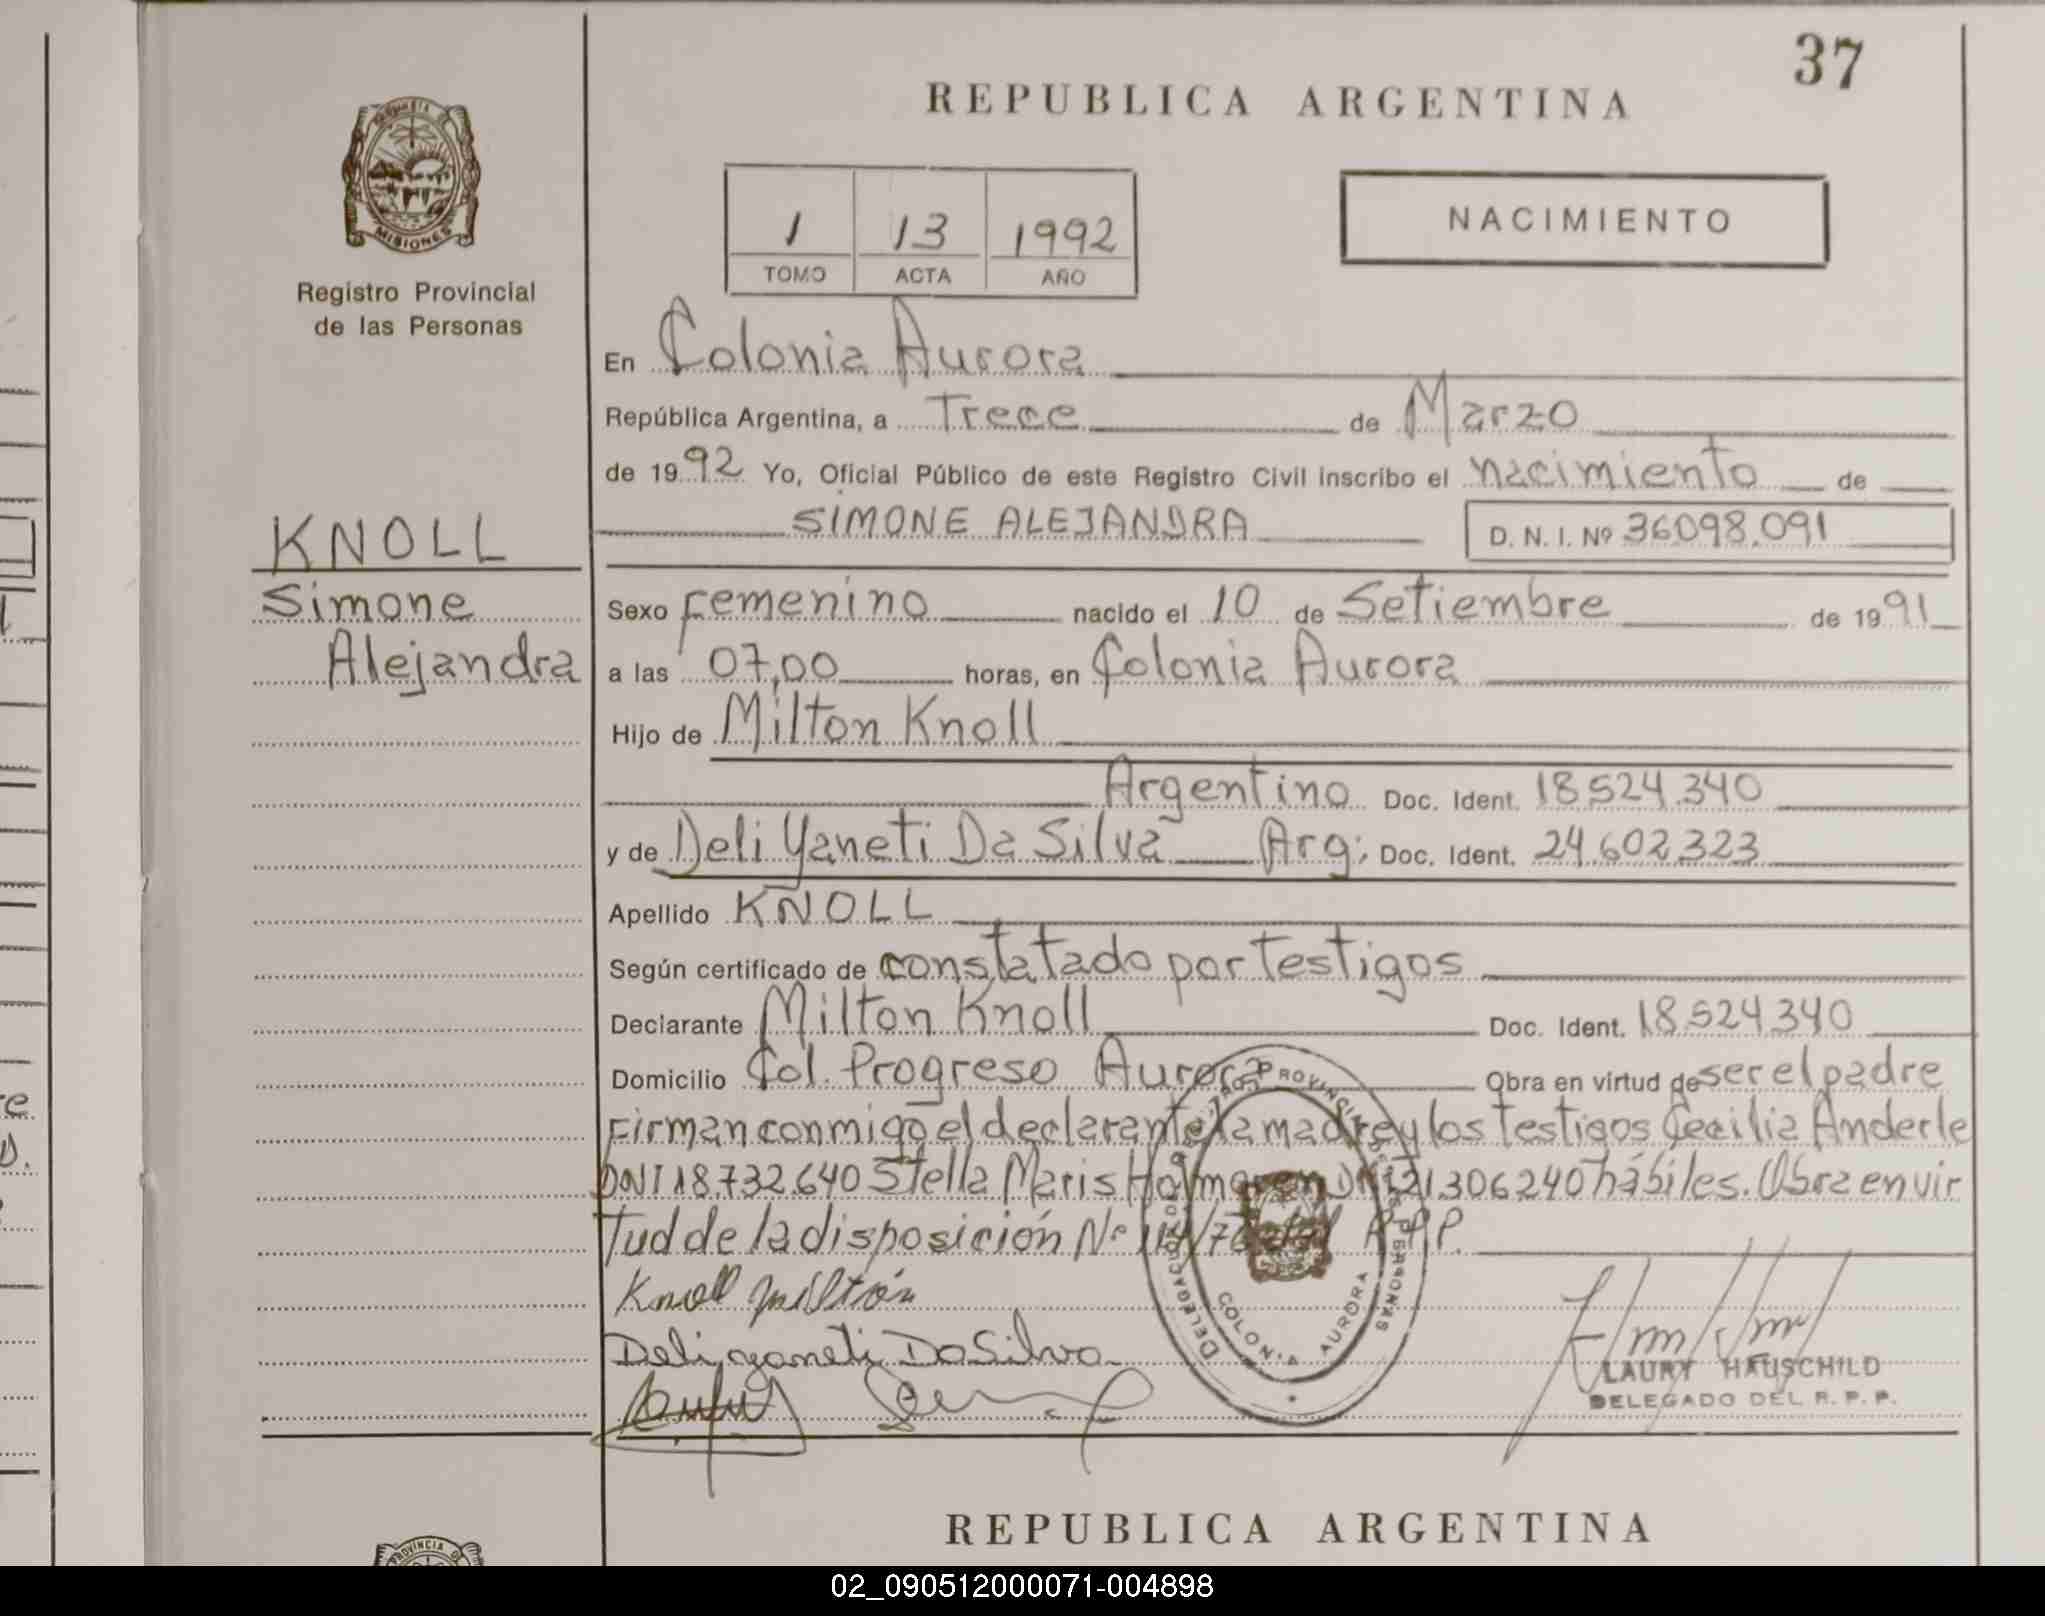 37
REPUBLICA ARGENTINA
MISIONES
Registro Provincial
de las Personas
1 13 1992
TOMO ACTA AÑO
NACIMIENTO
En Colonia Aurora
República Argentina, a Trece de Marzo
de 1992 Yo, Oficial Público de este Registro Civil inscribo el nacimiento de
SIMONE ALEJANDRA D. N. I. Nº 36098.091
KNOLL
Simone
Alejandra
Sexo Femenino nacido el 10 de Setiembre de 1991
a las 07,00 horas, en Colonia Aurora
Hijo de Milton Knoll
Argentino Doc. Ident. 18.524.340
y de Deli Yaneti Da Silva Arg; Doc. Ident. 24.602.323
Apellido KNOLL
Según certificado de constatado por testigos
Declarante Milton Knoll Doc. Ident. 18.524.340
Domicilio Col. Progreso Aurora Obra en virtud de ser el padre
Firman conmigo el declarante la madre y los testigos Cecilia Anderle
DNI 18.732.640 Stella Maris 21.306240 hábiles. Obra en vir
tud de la disposición Nº R.P.P.
Knoll Milton
Deli yaneti Da Silva
COLONIA AURORA
LAURY HAUSCHILD
DELEGADO DEL R. P. P.
PROVINCIA DE
REPUBLICA ARGENTINA
02_090512000071-004898